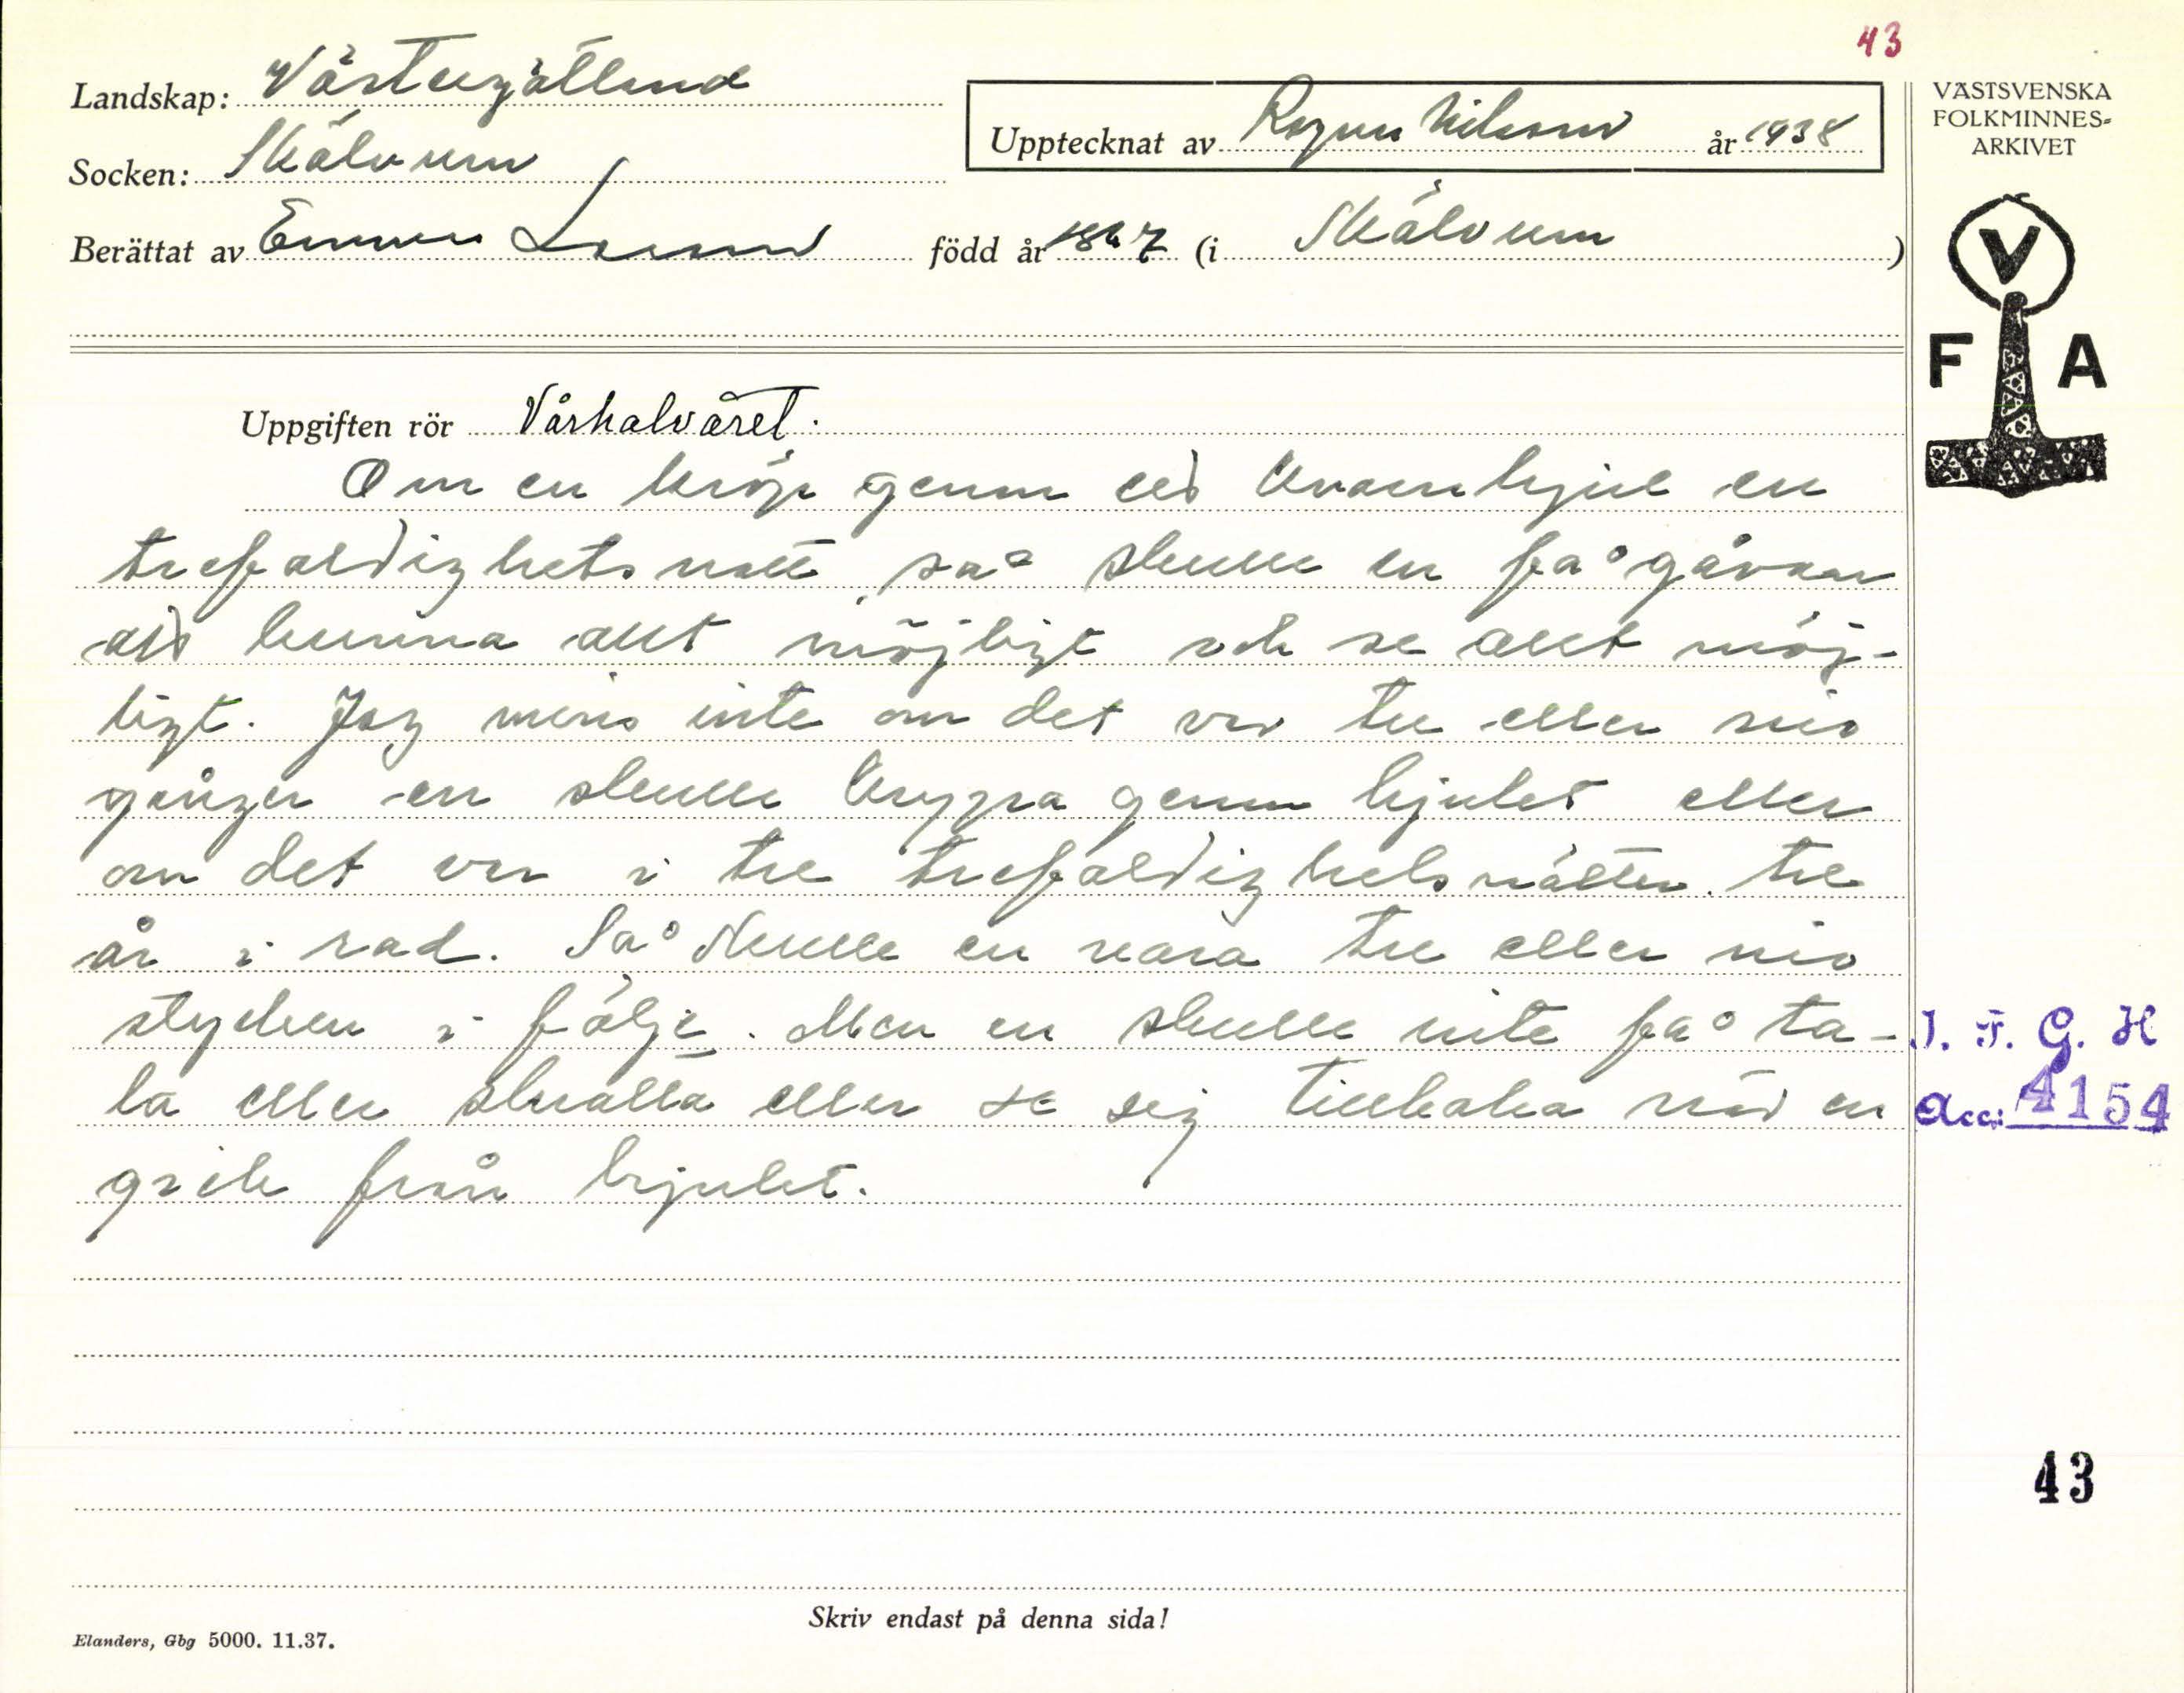 43
Landskap: Västergötland
Socken: Skälvum
Upptecknat av Ragnar Nilsson år 1938
Berättat av Emma Larsson född år 1867 (i Skälvum)
VÄSTSVENSKA
FOLKMINNES=
ARKIVET
V
F A
Uppgiften rör Vårhalvåret.
Om en kröp genom ett kvarnhjul en
trefaldighetsnatt, så skulle en få gåvan
att kunna allt möjligt och se allt möj-
ligt. Jag minns inte om det var tre eller nio
gånger en skulle krypa genom hjulet eller
om det var i tre trefaldighetsnätter tre
år i rad. Så skulle en vara tre eller nio
stycken i följe. Men en skulle inte få ta-
la eller skratta eller se sig tillbaka när en
gick från hjulet.
I. F. G. H
Acc: 4154
43
Skriv endast på denna sida!
Elanders, Gbg 5000. 11.37.